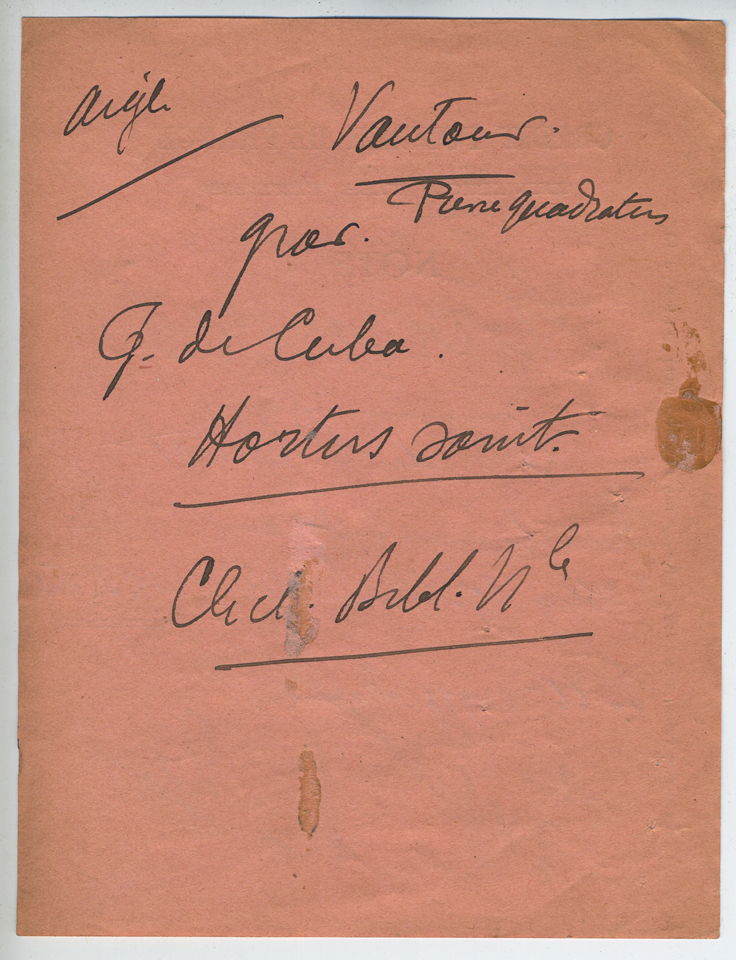 Aigle
Vautour.
Pierre quadratus
grav.
J. de Cuba.
Hortus sanit.
Clich. Bibl. Nle